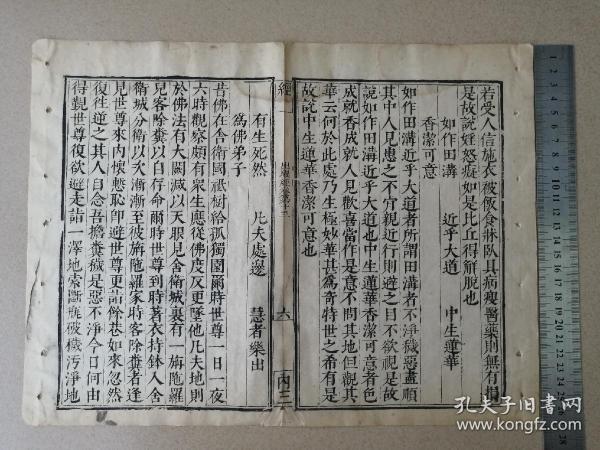 若受人信施衣被飯食牀臥具病瘦醫藥則無有損
是故說婬怒癡如是比丘得解脫也
如作田溝　近乎大道　中生蓮華
香潔可意
如作田溝近乎大道者所謂田溝者不淨穢惡盡順
其中人見患之不宜親近行則避之目不欲視是故
說如作田溝近乎大道也中生蓮華香潔可意者色
成就香成就人見歡喜當作是意不問其地但觀其
華云何於此處乃生極妙華甚為奇特世之希有是
故說中生蓮華香潔可意也
經一
出曜經卷第十三
六
內三
有生死然　凡夫處邊　慧者樂出
為佛弟子
昔佛在舍衛國祇樹給孤獨園爾時世尊一日一夜
六時觀察頗有眾生應從佛度反更墜他凡夫地則
於佛法有大闕減以天眼見舍衛城裏有一旃陀羅
兒客除糞以自存命爾時世尊到時著衣持鉢人舍
衛城分衛以次漸漸至彼旃陀羅家時客除糞者逢
見世尊來內懷慙恥即避世尊更詣餘巷如來忽然
復往逆之其人自念吾擔糞穢是惡不淨今日何由
得覲世尊復欲避走詣一澤地索斷瓶破穢污淨地
孔夫子旧书网
www.kongfz.com